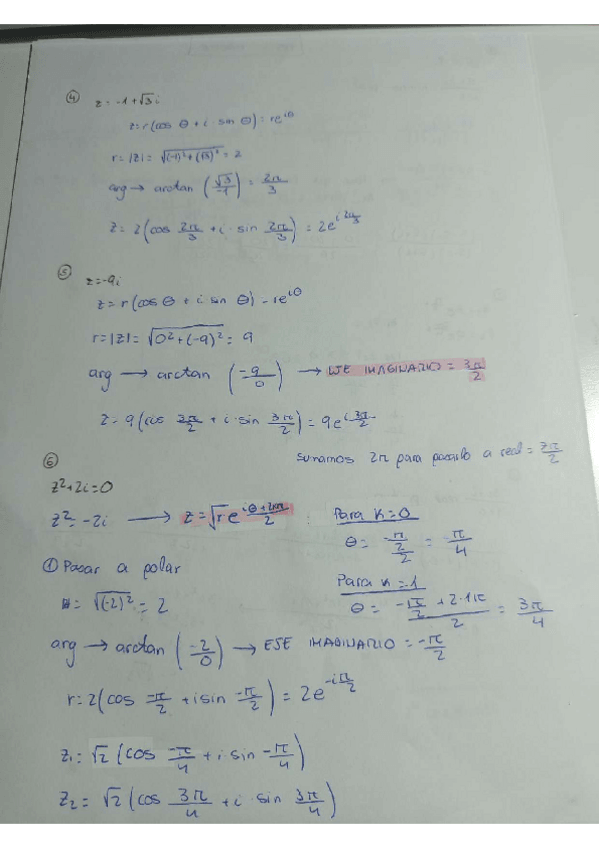 ④ z = -1+√3 i
z = r(cos θ + i sin θ) = re^{iθ}
r = |z| = √((-1)²+(√3)²) = 2
arg → arctan (√3/-1) = 2π/3
z = 2(cos 2π/3 + i · sin 2π/3) = 2e^{i 2π/3}
⑤ z = -9i
z = r(cos θ + i sin θ) = re^{iθ}
r = |z| = √(0²+(-9)²) = 9
arg → arctan (-9/0) → EJE IMAGINARIO = 3π/2
z = 9(cos 3π/2 + i · sin 3π/2) = 9e^{i 3π/2}
Sumamos 2π para pasarlo a real = 7π/2
⑥
z²+2i=0
z² = -2i → z = √r e^{i(θ+2kπ)/2}
Para K=0
θ = (-π/2)/2 = -π/4
① Pasar a polar
= √((-2)²) = 2
Para K=1
θ = (-π/2 + 2·1π)/2 = 3π/4
arg → arctan (-2/0) → ESE IMAGINARIO = -π/2
r = 2(cos -π/2 + i sin -π/2) = 2e^{-iπ/2}
z₁ = √2 (cos -π/4 + i · sin -π/4)
z₂ = √2 (cos 3π/4 + i · sin 3π/4)